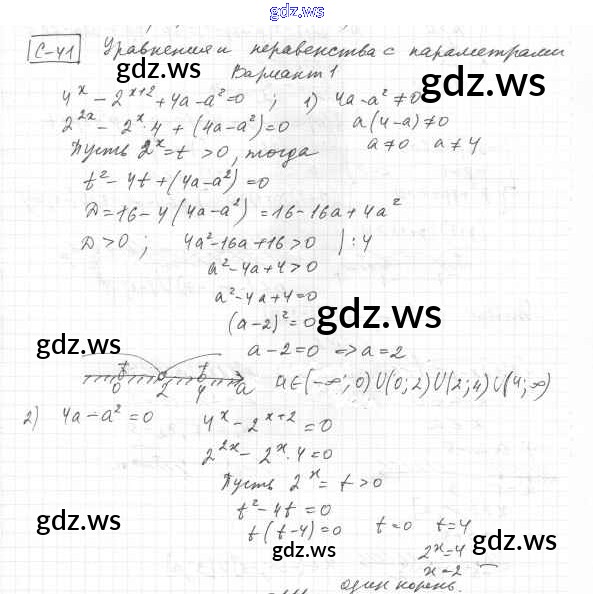 gdz.ws
С-41 Уравнения и неравенства с параметрами
gdz.ws
Вариант 1
gdz.ws
4^x - 2^{x+2} + 4a - a^2 = 0 ; 1) 4a - a^2 ≠ 0
2^{2x} - 2^x · 4 + (4a - a^2) = 0 a(4-a) ≠ 0
Пусть 2^x = t > 0, тогда a ≠ 0 a ≠ 4
t^2 - 4t + (4a - a^2) = 0
D = 16 - 4(4a - a^2) = 16 - 16a + 4a^2
D > 0 ; 4a^2 - 16a + 16 > 0 | : 4
a^2 - 4a + 4 > 0
a^2 - 4a + 4 = 0
(a-2)^2 = 0
gdz.ws
gdz.ws
a - 2 = 0 => a = 2
0 2 4 a a ∈ (-∞; 0) U (0; 2) U (2; 4) U (4; ∞)
2) 4a - a^2 = 0 4^x - 2^{x+2} = 0
2^{2x} - 2^x · 4 = 0
Пусть 2^x = t > 0
t^2 - 4t = 0
gdz.ws
t(t-4) = 0 t = 0 t = 4
gdz.ws
gdz.ws
2^x = 4
x = 2
один корень.